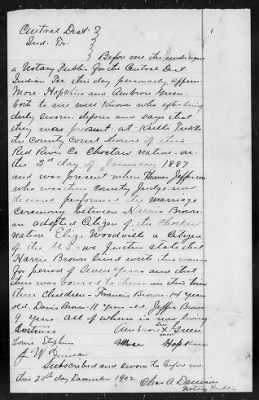 Central Dist }
Ind. Ter. }
Before me the undersigned
a Notary Public for the Central Dist
Indian Ter this day personally appear
Mose Hopkins and Ambrose Green
Both to me well known who after being
duly sworn deposes and says that
they was present at
the County Court House of
Red River Co Choctaw Nation on
the 3rd day of January 1887
and was present when Thomas Jefferson
who was then County Judge
performed the marriage
Ceremony between Harris Brown
an adopted Citizen of the Choctaw
Nation Eliza Woods with a Citizen
of the U.S. we further state that
Harris Brown lived with this woman
for period of eleven years and that
there was borned to them in this time
three children - Francis Brown 14 years
old Davis Brown 11 year old Jeffie Brown
9 years. all of whom is now living
Witness Ambrose x Green
Louis Stephen Mose Hopkins
J W
Subscribed and sworn to before me
this 20th day December 1902
Chas A
Notary Public